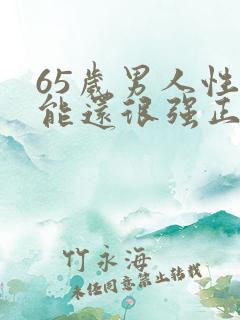 65歲男人性
能還很强正
竹永海
未经同意禁止转载